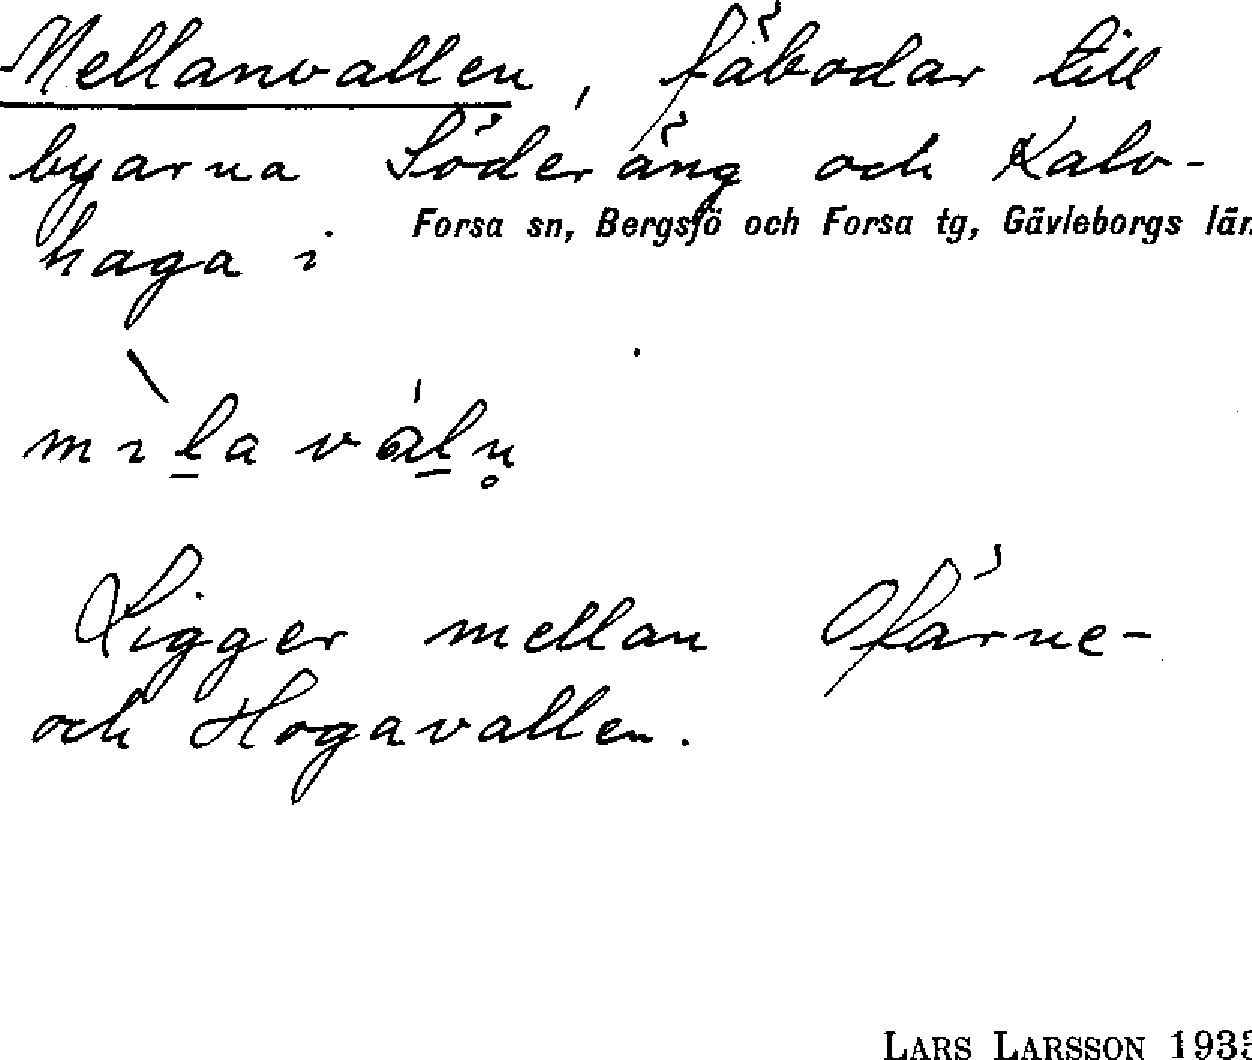 Mellanvallen, fäbodar till
byarna Söderäng och Kalv-
haga i Forsa sn, Bergsjö och Forsa tg, Gävleborgs län
mıl̲a vál̲n̥
Ligger mellan
och Hogavallen.
LARS LARSSON